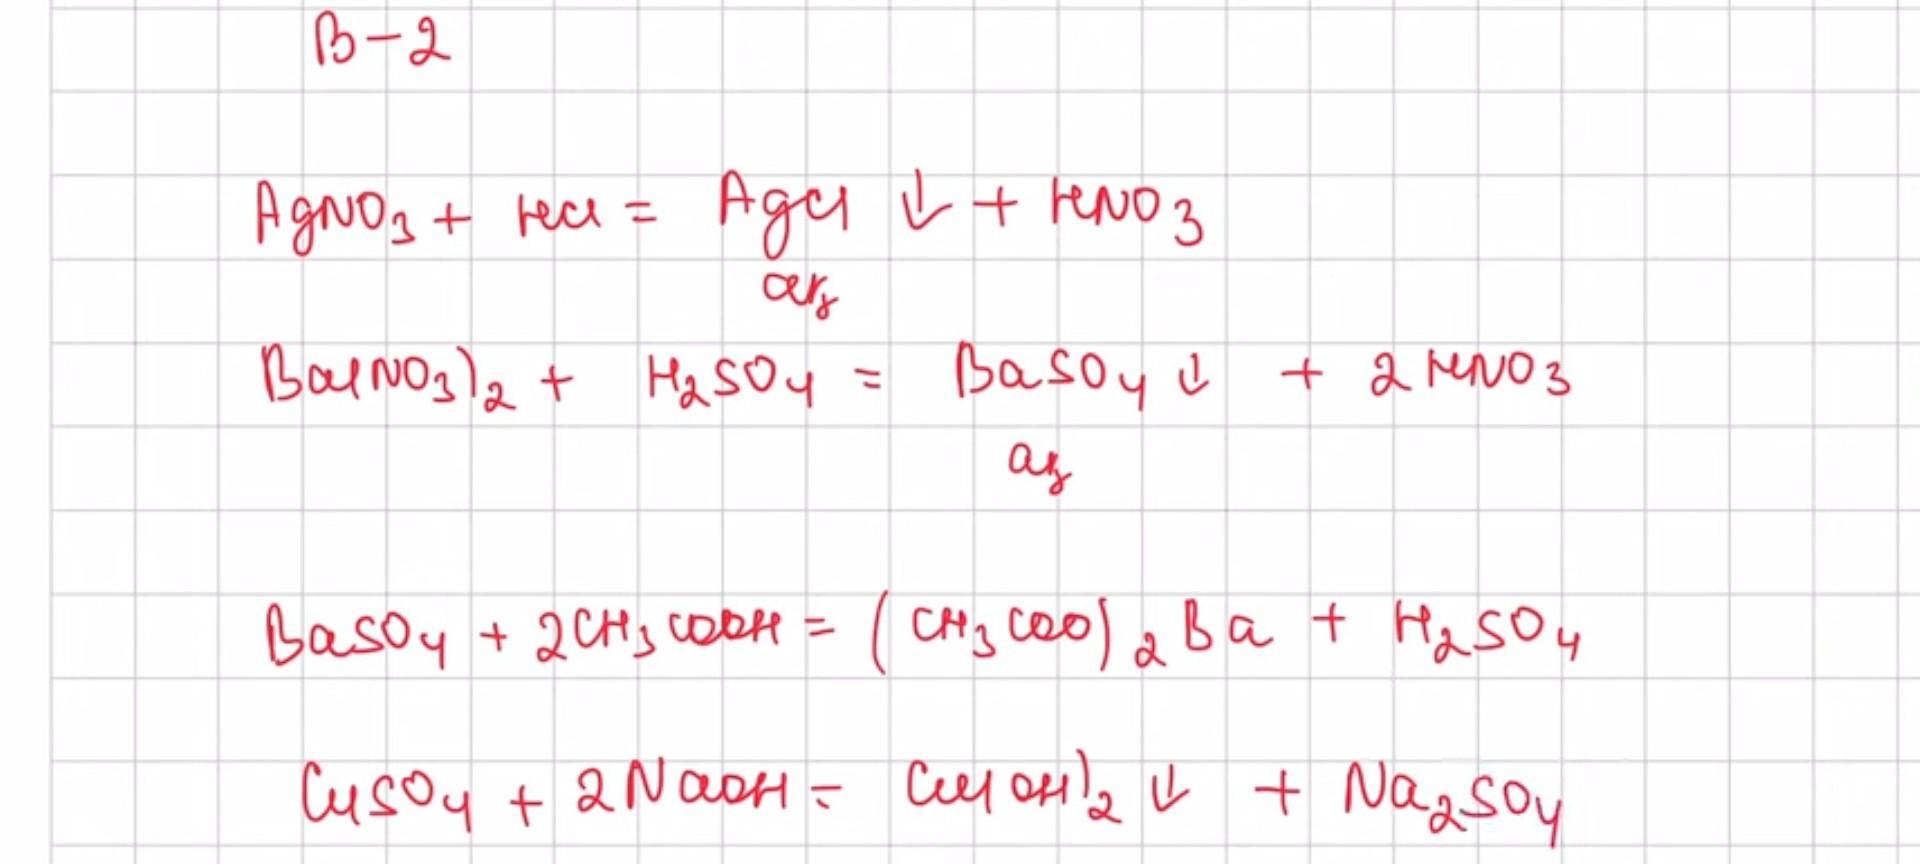 B-2
AgNO₃ + HCl = AgCl ↓ + HNO₃
ақ
Ba(NO₃)₂ + H₂SO₄ = BaSO₄ ↓ + 2HNO₃
ақ
BaSO₄ + 2CH₃COOH = (CH₃COO)₂Ba + H₂SO₄
CuSO₄ + 2NaOH = Cu(OH)₂ ↓ + Na₂SO₄